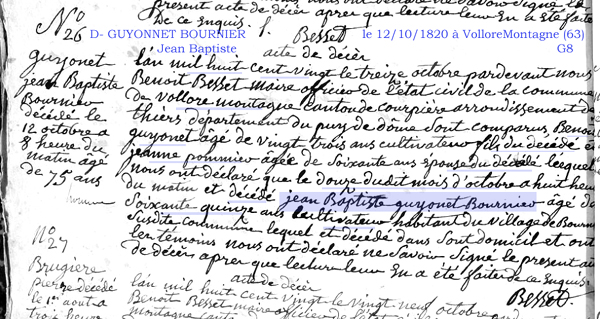 présent acte de décèr aprer que lecture leur En a été faite
De ce Enquis. f. Besset
N° 26
D- GUYONNET BOURNIER
Jean Baptiste
le 12/10/1820 à VolloreMontagne (63)
G8
acte de décèr
guyonet
jean Baptiste
Bournier
décédé le
12 octobre a
8 heure du
matin âgé
de 75 ans
l'an mil huit cent vingt le treize octobre pardevant nous
Benoit Besset maire officier de l'état civil de la commune
de vollore montagne canton de courpière arroudissement de
thiers département du puy de dôme Sont comparus, Benoit
guyonet âgé de vingt trois ans cultivateur fils du décédé et
jeanne pommier agée de Soixante ans epouse du décédé lequel
nous ont déclaré que le douze dudit mois d'octobre a huit heure
du matin et décédé jean Baptiste guyonet Bournier âgé de
Soixante quinze ans cultivateur habitant du Village de Bournier
Susdite commune lequel et décédé dans Sont domicil et ont
les témoins nous ont déclaré ne Savoir Signé le présent acte
de décèr aprer que lecture leur En a été faite de ce Enquis
Besset
N° 27
acte de décèr
Brugiere
pierre décédé
le 1er aout a
trois heure
l'an mil huit cent vingt le vingt neuf octobre
Benoit Besset maire officier de l'état civil
montagne canton